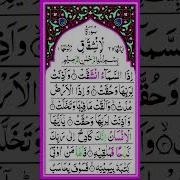 سورة
الانشقاق
بِسْمِ اللهِ الرَّحْمٰنِ الرَّحِيْمِ
اِذَا السَّمَآءُ انْشَقَّتْ ۝ وَاَذِنَتْ
لِرَبِّهَا وَحُقَّتْ ۝ وَاِذَا الْاَرْضُ
مُدَّتْ ۝ وَاَلْقَتْ مَا فِيْهَا وَتَخَلَّتْ ۝
وَاَذِنَتْ لِرَبِّهَا وَحُقَّتْ ۝ يٰۤاَيُّهَا
الْاِنْسَانُ اِنَّكَ كَادِحٌ اِلٰى رَبِّكَ
كَدْحًا فَمُلٰقِيْهِ ۝ فَاَمَّا مَنْ اُوْتِيَ
كِتٰبَهٗ بِيَمِيْنِهٖ ۝ فَسَوْفَ يُحَاسَبُ